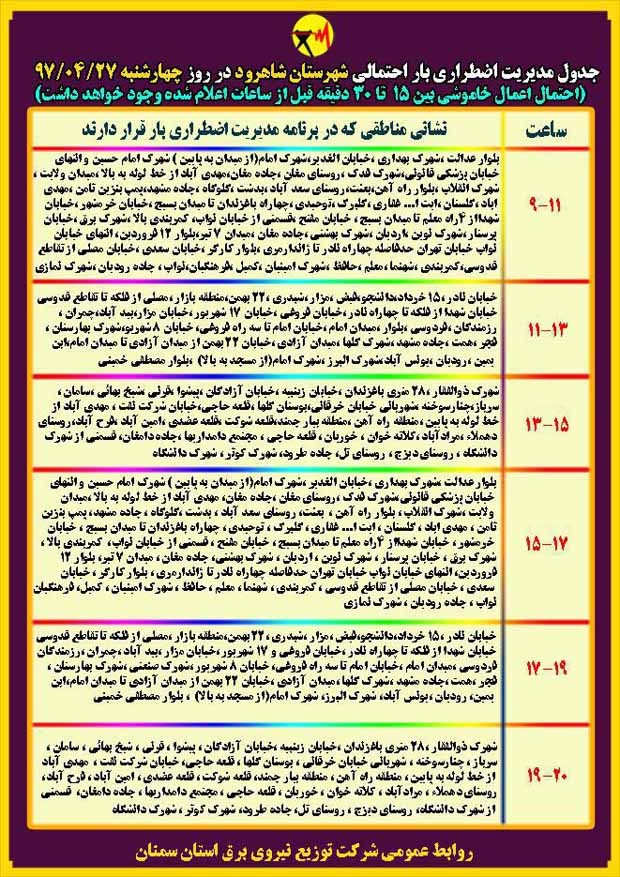 جدول مدیریت اضطراری بار احتمالی شهرستان شاهرود در روز چهارشنبه ۹۷/۰۴/۲۷
(احتمال اعمال خاموشی بین ۱۵ تا ۳۰ دقیقه قبل از ساعات اعلام شده وجود خواهد داشت)
ساعت
نشانی مناطقی که در برنامه مدیریت اضطراری بار قرار دارند
۹-۱۱
بلوار عدالت ،شهرک بهداری ،خیابان الغدیر،شهرک امام(از میدان به پایین ) شهرک امام حسین و انتهای
خیابان پزشکی قانونی،شهرک فدک ،روستای مغان ،جاده مغان،مهدی آباد از خط لوله به بالا،میدان ولایت ،
شهرک انقلاب ،بلوار راه آهن،بعثت،روستای سعد آباد ،بدشت ،گلوگاه ،جاده مشهد،پمپ بنزین ثامن ،مهدی
آباد، گلستان ، آیت ا... غفاری، گلبرگ ،توحیدی ،چهاراه باغزندان تا میدان بسیج ،خیابان خرمشهر،خیابان
شهدا از ۴راه معلم تا میدان بسیج ، خیابان مفتح ،قسمتی از خیابان نواب، کمربندی بالا، شهرک برق ،خیابان
پرستار، شهرک نوین ،اردیان ، شهرک بهشتی ،جاده مغان ،میدان ۷ تیر،بلوار ۱۲ فروردین، انتهای خیابان
نواب خیابان تهران حدفاصله چهاراه نادر تا ژاندارمری ،بلوار کارگر ،خیابان سعدی ،خیابان مصلی از تقاطع
قدوسی،کمربندی ،شهنما، معلم ،حافظ ،شهرک امینیان ،کمیل ،فرهنگیان،نواب ، جاده رودیان ،شهرک نمازی
۱۱-۱۳
خیابان نادر، ۱۵ خرداد،دانشجو،فیض ،مزار ،شیدری ،۲۲ بهمن،منطقه بازار، مصلی از فلکه تا تقاطع قدوسی
خیابان شهدا از فلکه تا چهاراه نادر، خیابان فروغی ، خیابان ۱۷ شهریور، خیابان مزار،بید آباد،چمران ،
رزمندگان ،فردوسی ،بلوار ،میدان امام ،خیابان امام تا سه راه فروغی، خیابان ۸ شهریور،شهرک بهارستان ،
فجر ،همت ،جاده مشهد، شهرک گلها ،میدان آزادی ،خیابان ۲۲ بهمن از میدان آزادی تا میدان امام،ابن
یمین ، رودیان ،یونس آباد،شهرک البرز، شهرک امام(از مسجد به بالا) ،بلوار مصطفی خمینی
۱۳-۱۵
شهرک ذوالفقار ،۲۸ متری باغزندان ،خیابان زینبیه ،خیابان آزادگان ،پیشوا ،قرنی ،شیخ بهائی ،سامان،
سرباز،چنارسوخته ،شهربانی خیابان خرقانی،بوستان گلها، قلعه حاجی،خیابان شرکت نفت ، مهدی آباد از
خط لوله به پایین ،منطقه راه آهن ،منطقه بیار جمند،قلعه شوکت ،قلعه عضدی ، امین آباد ،فرح آباد،روستای
دهملاء ،مرادآباد ،کلاته خوان ، خوریان ،قلعه حاجی ، مجتمع دامداریها ،جاده دامغان، قسمتی از شهرک
دانشگاه ، روستای دیزج ، روستای تل، جاده طرود، شهرک کوثر ، شهرک دانشگاه
۱۵-۱۷
بلوار عدالت ،شهرک بهداری ،خیابان الغدیر ،شهرک امام(از میدان به پایین ) شهرک امام حسین و انتهای
خیابان پزشکی قانونی،شهرک فدک ،روستای مغان ،جاده مغان، مهدی آباد از خط لوله به بالا ،میدان
ولایت ،شهرک انقلاب، بلوار راه آهن ، بعثت، روستای سعد آباد ، بدشت ،گلوگاه ، جاده مشهد، پمپ بنزین
ثامن ، مهدی آباد ، گلستان ، آیت ا... غفاری ، گلبرگ ، توحیدی ، چهاراه باغزندان تا میدان بسیج ، خیابان
خرمشهر ، خیابان شهدا از ۴راه معلم تا میدان بسیج ، خیابان مفتح ، قسمتی از خیابان نواب، کمربندی بالا ،
شهرک برق ، خیابان پرستار ، شهرک نوین ، اردیان ، شهرک بهشتی ،جاده مغان ، میدان ۷ تیر، بلوار ۱۲
فروردین، انتهای خیابان نواب خیابان تهران حدفاصله چهاراه نادر تا ژاندارمری ، بلوار کارگر ، خیابان
سعدی ، خیابان مصلی از تقاطع قدوسی ، کمربندی ، شهنما ، معلم ، حافظ ، شهرک امینیان ، کمیل، فرهنگیان
نواب ، جاده رودیان ، شهرک نمازی
۱۷-۱۹
خیابان نادر، ۱۵ خرداد،دانشجو،فیض ،مزار، شیدری ،۲۲ بهمن،منطقه بازار ،مصلی از فلکه تا تقاطع قدوسی
خیابان شهدا از فلکه تا چهاراه نادر ، خیابان فروغی و ۱۷ شهریور ، خیابان مزار ، بید آباد ،چمران،رزمندگان
فردوسی ،میدان امام ، خیابان امام تا سه راه فروغی، خیابان ۸ شهریور ،شهرک صنعتی ،شهرک بهارستان ،
فجر، همت ،جاده مشهد ،شهرک گلها ،میدان آزادی ،خیابان ۲۲ بهمن از میدان آزادی تا میدان امام،ابن
یمین، رودیان، یونس آباد، شهرک البرز، شهرک امام(از مسجد به بالا) ، بلوار مصطفی خمینی
۱۹-۲۰
شهرک ذوالفقار ، ۲۸ متری باغزندان ، خیابان زینبیه ،خیابان آزادگان ، پیشوا ، قرنی ، شیخ بهائی ، سامان ،
سرباز ، چنارسوخته ، شهربانی خیابان خرقانی ، بوستان گلها ، قلعه حاجی،خیابان شرکت نفت ، مهدی آباد
از خط لوله به پایین ،منطقه راه آهن ، منطقه بیار جمند، قلعه شوکت ، قلعه عضدی ، امین آباد ، فرح آباد،
روستای دهملاء ، مرادآباد ، کلاته خوان ، خوریان ، قلعه حاجی ، مجتمع دامداریها ، جاده دامغان، قسمتی
از شهرک دانشگاه، روستای دیزج ، روستای تل، جاده طرود، شهرک کوثر ، شهرک دانشگاه
روابط عمومی شرکت توزیع نیروی برق استان سمنان